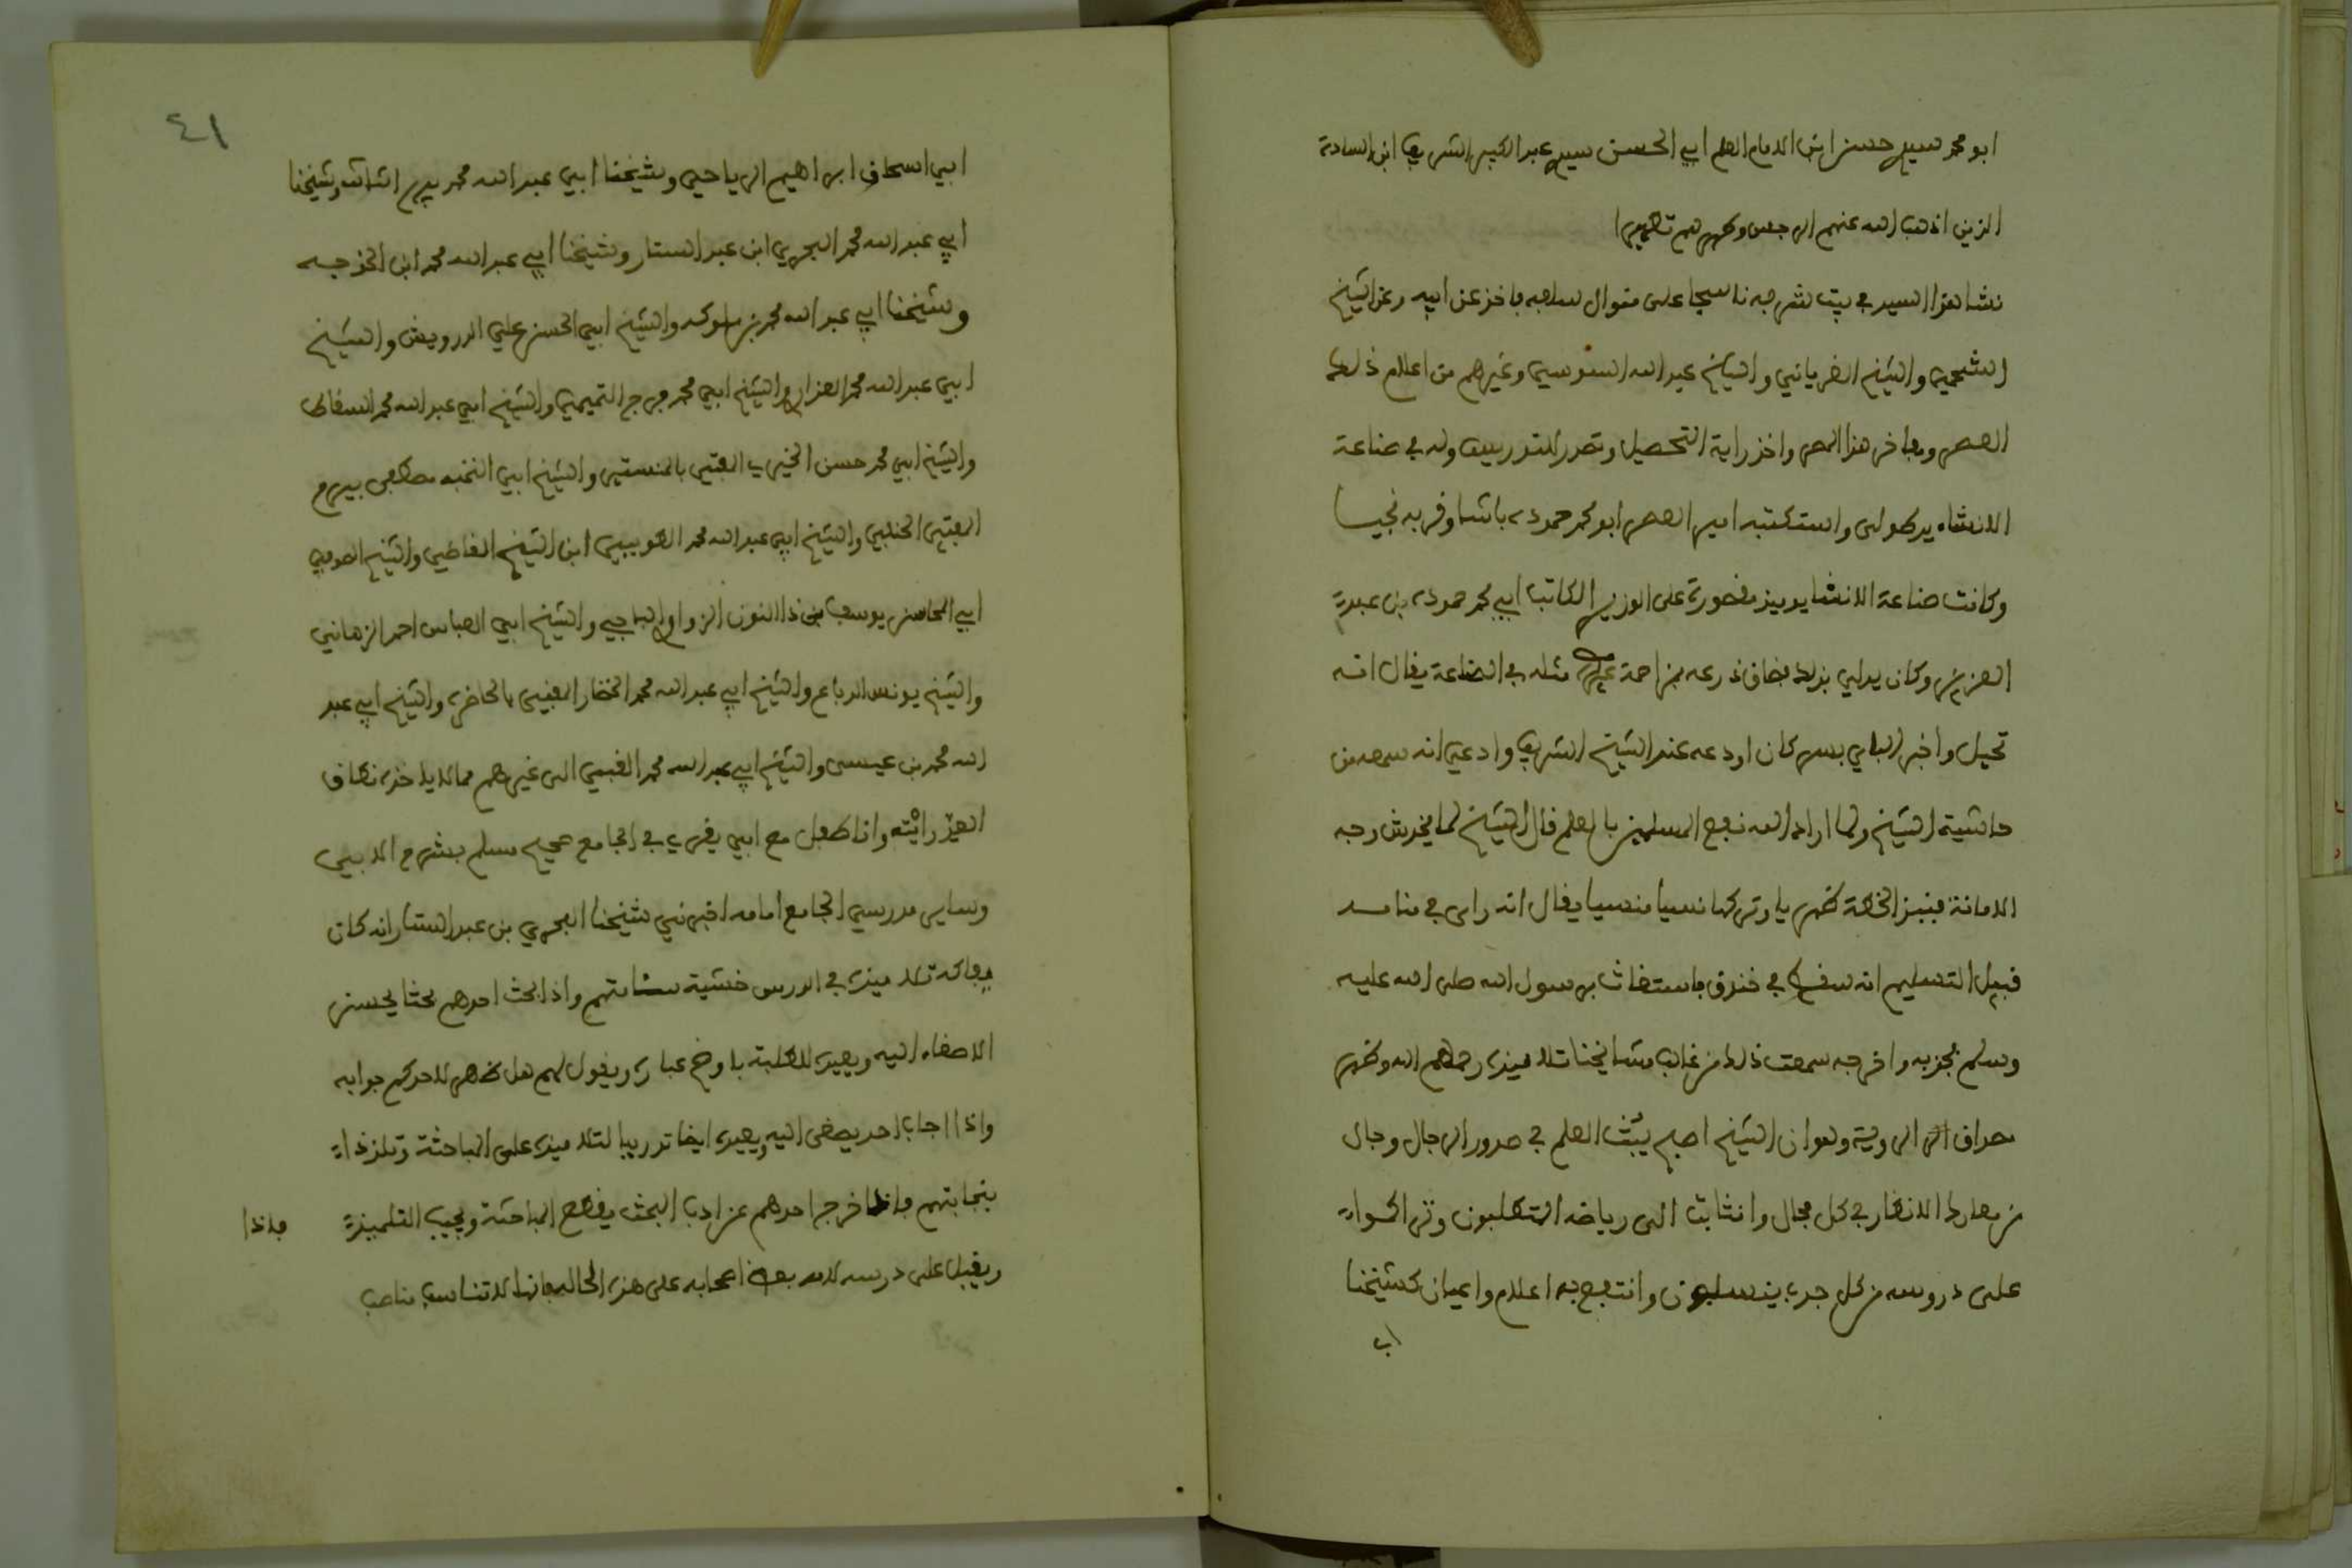 ابو محمد سيدي حسن ابن الامام العلم ابي الحسن سيدي عبد الكبير الشريف ابن السادة
الذين اذهب الله عنهم الرجس وطهرهم تطهيرا
نشا هذا السيد في بيت شرفه ناسجا على منوال سلفه فاخذ عن ابيه وعن الشيخ
الشحمي والشيخ الغرياني والشيخ عبد الله السوسي وغيرهم من اعلام ذلك
العصر ومفاخر هذا المصر واخذ راية التحصيل وتصدر للتدريس وله في صناعة
الانشاء يد طولى واستكتبه امير العصر ابو محمد حموده باشا وقربه نجيا
وكانت صناعة الانشا يوميذ مقصورة على الوزير الكاتب ابي محمد حموده بن عبد
العزيز وكان يدلي بذلك فضاق ذرعه بمزاحمة مثله في الصناعة يقال انه
تحيل واخبر الباي بسر كان اودعه عند الشيخ الشريف وادعى انه سمعه من
حاشية الشيخ ولما اراد الله نفع المسلمين بالعلم قال الشيخ لما يخدش وجه
الامانة فنبذ الخطة ظهريا وتركها نسيا منسيا يقال انه راى في منامه
قبيل التسليم انه سقط في خندق فاستغاث برسول الله صلى الله عليه
وسلم فجذبه واخرجه سمعت ذلك من غالب مشايخنا تلاميذه رحمهم الله وظهر
مصداق الروية وهو ان الشيخ اصبح يبث العلم في صدور الرجال وجال
من معارك الانظار في كل مجال وانثالت الى رياضه المتطلبون وترا
على دروسه من كل حدب ينسلون وانتفع به اعلام واعيان كشيخنا
اب
٤١
ابي اسحاق ابراهيم الرياحي وشيخنا ابي عبد الله محمد بيرم الثالث وشيخنا
ابي عبد الله محمد البحري ابن عبد الستار وشيخنا ابي عبد الله محمد ابن الخوجه
وشيخنا ابي عبد الله محمد بن ملوكه والشيخ ابي الحسن علي الدرويش والشيخ
ابي عبد الله محمد العذاري والشيخ ابي محمد فرج التميمي والشيخ ابي عبد الله محمد السقاط
والشيخ ابي محمد حسن الخيري المفتي بالمنستير والشيخ ابي النخبه مصطفى بيرم
المفتي الحنفي والشيخ ابي عبد الله محمد الطويبي ابن الشيخ القاضي والشيخ الصوفي
ابي المحاسن يوسف بن ذا النون الزواوي الباجي والشيخ ابي العباس احمد الزماني
والشيخ يونس الرباع والشيخ ابي عبد الله محمد الخضار المفتي بالحاضره والشيخ ابي عبد
الله محمد بن عيسى والشيخ ابي عبد الله محمد الفيسي الى غيرهم مما لا ياخذه نطاق
العد رايته وانا طفل مع ابي يقري في الجامع صحيح مسلم بشرح الابي
وساير مدرسي الجامع امامه اخبرني شيخنا البحري بن عبد الستار انه كان
تلاميذه في الدرس خشية سئامتهم واذا بحث احدهم بحثا يحسن
الاصغاء اليه ويعيده للطلبة باوضح عباره ويقول لهم هل ظهر لاحدكم جوابه
واذا اجاب احد يصغى اليه ويعيده ايضا تدريبا لتلاميذه على المباحثة وتلذذا
بنجابتهم فاذا خرج احدهم عن ادب البحث يقطع المباحثة ويجيب التلميذ
فاذا
ويقبل على درسه لامه بعض اصحابه على هذه الحاله فانها لا تناسب مناصب